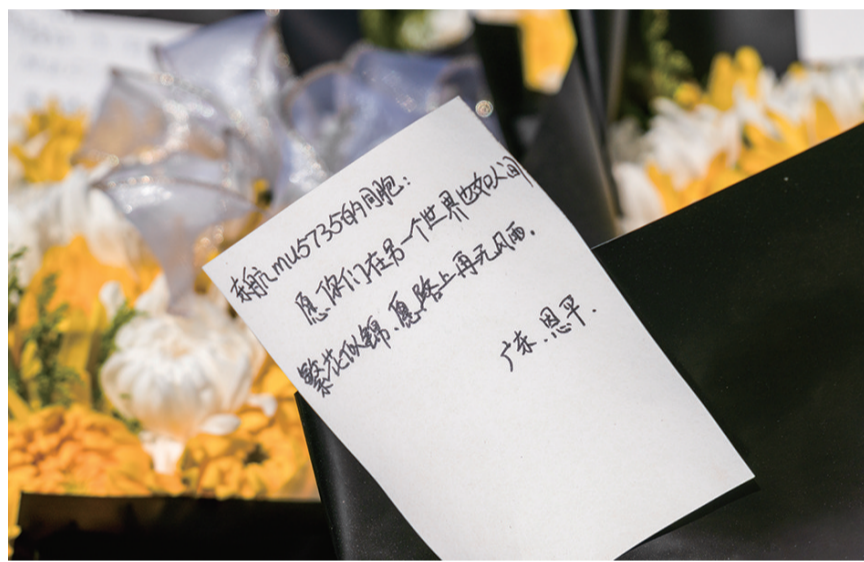 东航mu5735的同胞:
愿你们在另一个世界也如人间
繁花似锦、愿路上再无风雨.
广东.恩平.